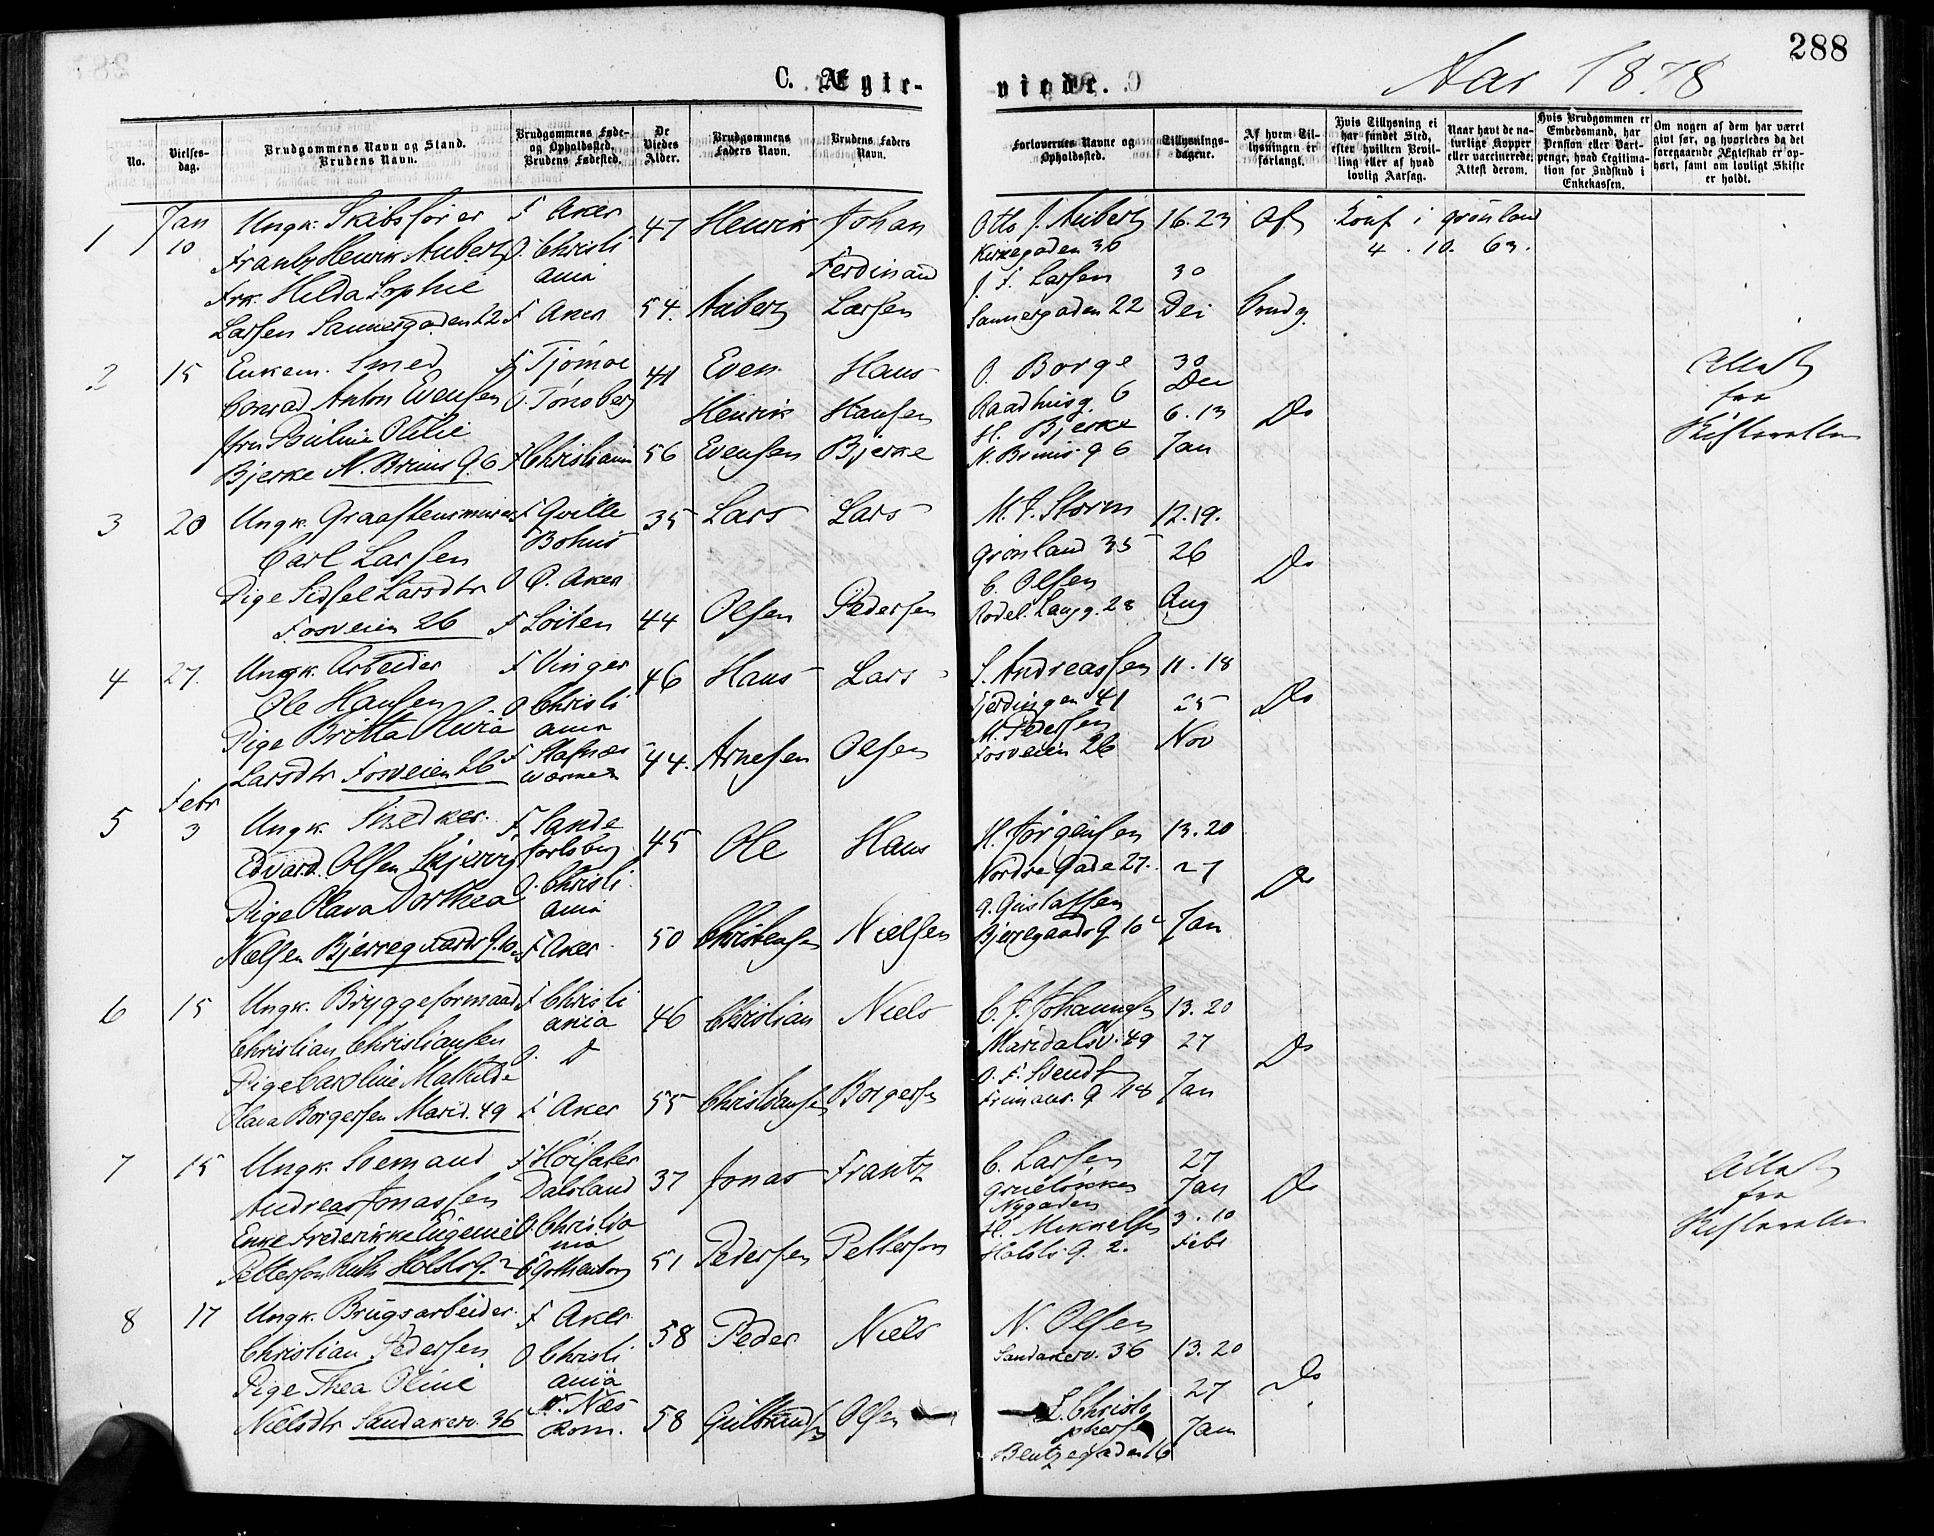 288
C. Ægte-
viede.
Aar 1878
No.
Vielses-
dag.
Brudgommens Navn og Stand.
Brudens Navn.
Brudgommens Føde-
og Opholdssted.
Brudens Fødested.
De
Viedes
Alder.
Brudgommens
Faders Navn.
Brudens Faders
Navn.
Forlovernes Navne og
Opholdssted.
Tillysnings-
dagene.
Af hvem Til-
lysningen er
forlangt.
Hvis Tillysning ei
har fundet Sted,
efter hvilken Bevil-
ling eller af hvad
lovlig Aarsag.
Naar havt de na-
turlige Kopper
eller vaccinerede;
Attest derom.
Hvis Brudgommen er
Embedsmand, har
Pension eller Vart-
penge, hvad Legitima-
tion for Indskud i
Enkekassen.
Om nogen af dem har været
givt før, og hvorledes da det
foregaaende Ægteskab er op-
hørt, samt om lovligt Skifte
er holdt.
1
Jan
10
Ungk. Skibsfører
Frantz Henrik Aubert
Frk. Hilda Sophie
Larsen Sannergaden 22
F Aker
O. Christi
ania
F Aker
47
54.
Henrik
Aubert
Johan
Ferdinand
Larsen
Otto J. Aubert
Kirkegaden 36
J. F. Larsen
Sannergaden 22
16.23
30
Dei
Af
Brudg
Konf i Grønland
4 . 10. 63.
2
15
Enkem. Smed
Conrad Anton Evensen
Pauline Otilie
Bjerke N. Bruns G. 6
F Tjømøe
O. Tønsberg
F Christiania
41
56
Even
Henrik
Evensen
Hans
Hansen
Bjerke
O. Borge
Raadhusg. 6
H. Bjerke
N. Bruns g 6
30
6.13
Jan
Do
fra
Skifteretten
3
20
Ungk. Graastensmurer
Carl Larsen
Pige Sidsel Larsdtr
Fosveien 26
F Qville
Bohus
O Ø. Aker
F Løiten
35
44
Lars
Olsen
Lars
Pedersen
M. J. Storm
Grønland 35
C. Olsen
Rodel. Langg. 28
12.19.
26
Aug
Do
4
27.
Ungk. Arbeider
Ole Hansen
Pige Britta Maria
Larsdtr Fosveien 26
F Vinger
O Christi
ania
46
44.
Hans
Arnesen
Lars
Olsen
S. Andreassen
Fjerdingen 41
M. Pedersen
Fosveien 26
11.18
25
Nov
Do
5
Febr
3
Ungk. Snedker
Edvard Olsen
Pige Olava Dorthea
Nielsen Bjerregaards g. 10
F. Sande
Jarlsberg
O. Christi
ania
F Aker
45
50
Ole
Christensen
Hans
Nielsen
H. Jørgensen
Nordre Gade 27.
G. Gustafsen
Bjerregaards G 10
13.20
27
Jan
Do
6
15
Ungk. Bryggeformand
Christian Christiansen
Pige Caroline Mathilde
Olava Borgersen Marid. 49
F Christi
ania
O. D
F Aker
46
55
Christian
Christiansen
Niels
Borgersen
C. J. Johannesen
Maridalsv. 49
Frimans. G 18
13.20
27
Jan
Do
7
15
Ungk. Sømand
Andreas Jonassen
Enke Frederikke Eugenie
Petterson Ruth Holsts G. 2
Dalsland
O. Christia
nia
F Gøtheborg
37
51
Jonas
Pedersen
Frantz
Petterson
C. Larsen
Grünløkken
Nygaden
H. Mikkelsen
Holsts G. 2.
27
Jan
3.10
Febr
Do
fra
Skifteretten
8
17
Ungk. Brugsarbeider
Christian Pedersen
Pige Thea Oline
Nielsdtr Sandakerv. 36
F Aker
O Christi
ania
F. Næs
Rom.
58
58
Peder
Gulbrandsen
Niels
Olsen
N. Olsen
Sandakerv. 36
L. Christo
phersen
Bentzegaden 16
13.20
27
Jan
Do